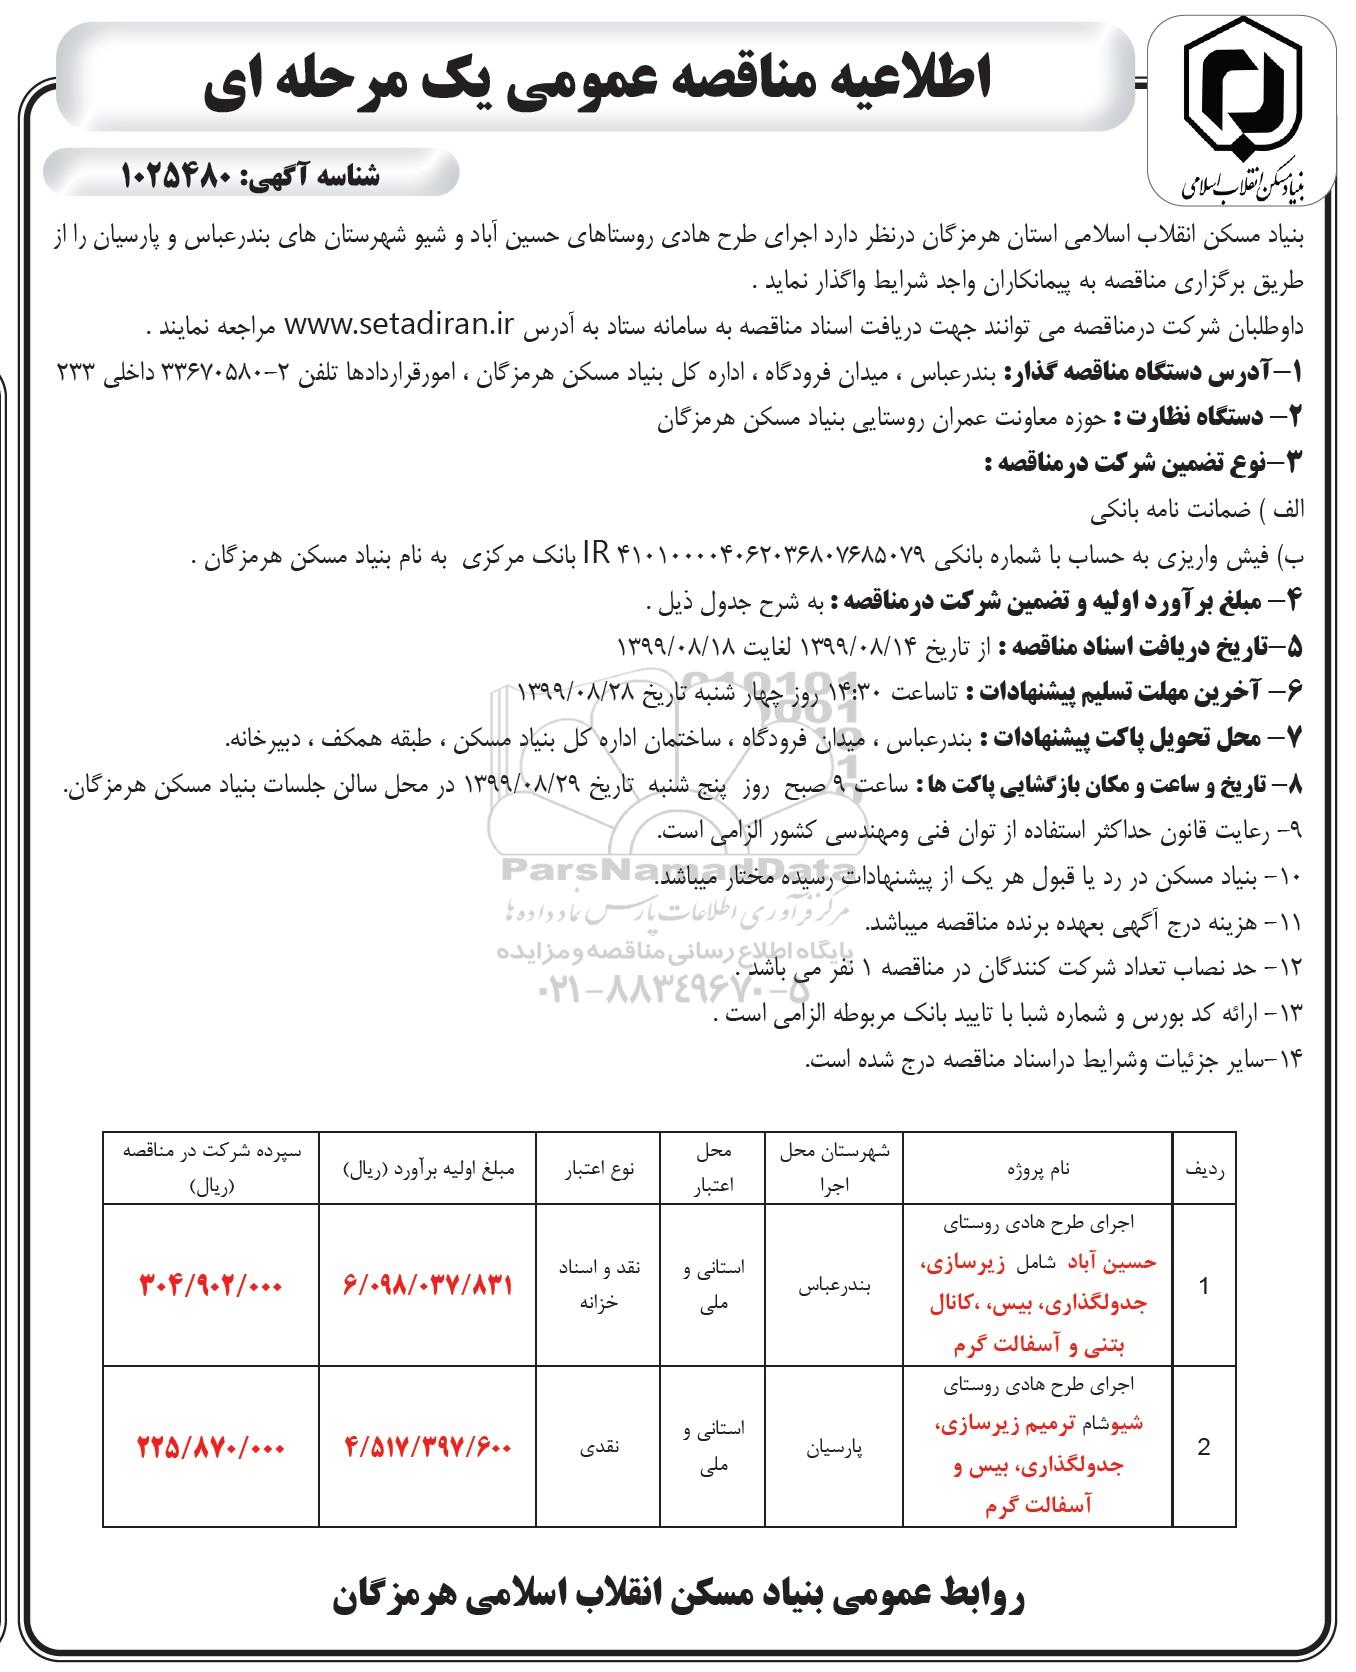 بنیاد مسکن انقلاب اسلامی
اطلاعیه مناقصه عمومی یک مرحله ای
شناسه آگهی: ۱۰۲۵۴۸۰
بنیاد مسکن انقلاب اسلامی استان هرمزگان درنظر دارد اجرای طرح هادی روستاهای حسین آباد و شیو شهرستان های بندرعباس و پارسیان را از
طریق برگزاری مناقصه به پیمانکاران واجد شرایط واگذار نماید .
داوطلبان شرکت درمناقصه می توانند جهت دریافت اسناد مناقصه به سامانه ستاد به آدرس www.setadiran.ir مراجعه نمایند .
۱-آدرس دستگاه مناقصه گذار: بندرعباس ، میدان فرودگاه ، اداره کل بنیاد مسکن هرمزگان ، امورقراردادها تلفن ۲-۳۳۶۷۰۵۸۰ داخلی ۲۳۳
۲- دستگاه نظارت : حوزه معاونت عمران روستایی بنیاد مسکن هرمزگان
۳-نوع تضمین شرکت درمناقصه :
الف ) ضمانت نامه بانکی
ب) فیش واریزی به حساب با شماره بانکی IR ۴۱۰۱۰۰۰۰۴۰۶۲۰۳۶۸۰۷۶۸۵۰۷۹ بانک مرکزی به نام بنیاد مسکن هرمزگان .
۴- مبلغ برآورد اولیه و تضمین شرکت درمناقصه : به شرح جدول ذیل .
۵-تاریخ دریافت اسناد مناقصه : از تاریخ ۱۳۹۹/۰۸/۱۴ لغایت ۱۳۹۹/۰۸/۱۸
۶- آخرین مهلت تسلیم پیشنهادات : تاساعت ۱۴:۳۰ روز چهار شنبه تاریخ ۱۳۹۹/۰۸/۲۸
۷- محل تحویل پاکت پیشنهادات : بندرعباس ، میدان فرودگاه ، ساختمان اداره کل بنیاد مسکن ، طبقه همکف ، دبیرخانه.
۸- تاریخ و ساعت و مکان بازگشایی پاکت ها : ساعت ۹ صبح روز پنج شنبه تاریخ ۱۳۹۹/۰۸/۲۹ در محل سالن جلسات بنیاد مسکن هرمزگان.
۹- رعایت قانون حداکثر استفاده از توان فنی ومهندسی کشور الزامی است.
ParsNamadData
۱۰- بنیاد مسکن در رد یا قبول هر یک از پیشنهادات رسیده مختار میباشد.
مرکز فرآوری اطلاعات پارس نماد داده ها
۱۱- هزینه درج آگهی بعهده برنده مناقصه میباشد.
پایگاه اطلاع رسانی مناقصه و مزایده
۱۲- حد نصاب تعداد شرکت کنندگان در مناقصه ۱ نفر می باشد .
۰۲۱-۸۸۳۴۹۶۷۰-۵
۱۳- ارائه کد بورس و شماره شبا با تایید بانک مربوطه الزامی است .
۱۴-سایر جزئیات وشرایط دراسناد مناقصه درج شده است.
ردیف
نام پروژه
شهرستان محل
اجرا
محل
اعتبار
نوع اعتبار
مبلغ اولیه برآورد (ریال)
سپرده شرکت در مناقصه
(ریال)
1
اجرای طرح هادی روستای
حسین آباد شامل زیرسازی،
جدولگذاری، بیس، ،کانال
بتنی و آسفالت گرم
بندرعباس
استانی و
ملی
نقد و اسناد
خزانه
۶/۰۹۸/۰۳۷/۸۳۱
۳۰۴/۹۰۲/۰۰۰
2
اجرای طرح هادی روستای
شیوشام ترمیم زیرسازی،
جدولگذاری، بیس و
آسفالت گرم
پارسیان
استانی و
ملی
نقدی
۴/۵۱۷/۳۹۷/۶۰۰
۲۲۵/۸۷۰/۰۰۰
روابط عمومی بنیاد مسکن انقلاب اسلامی هرمزگان